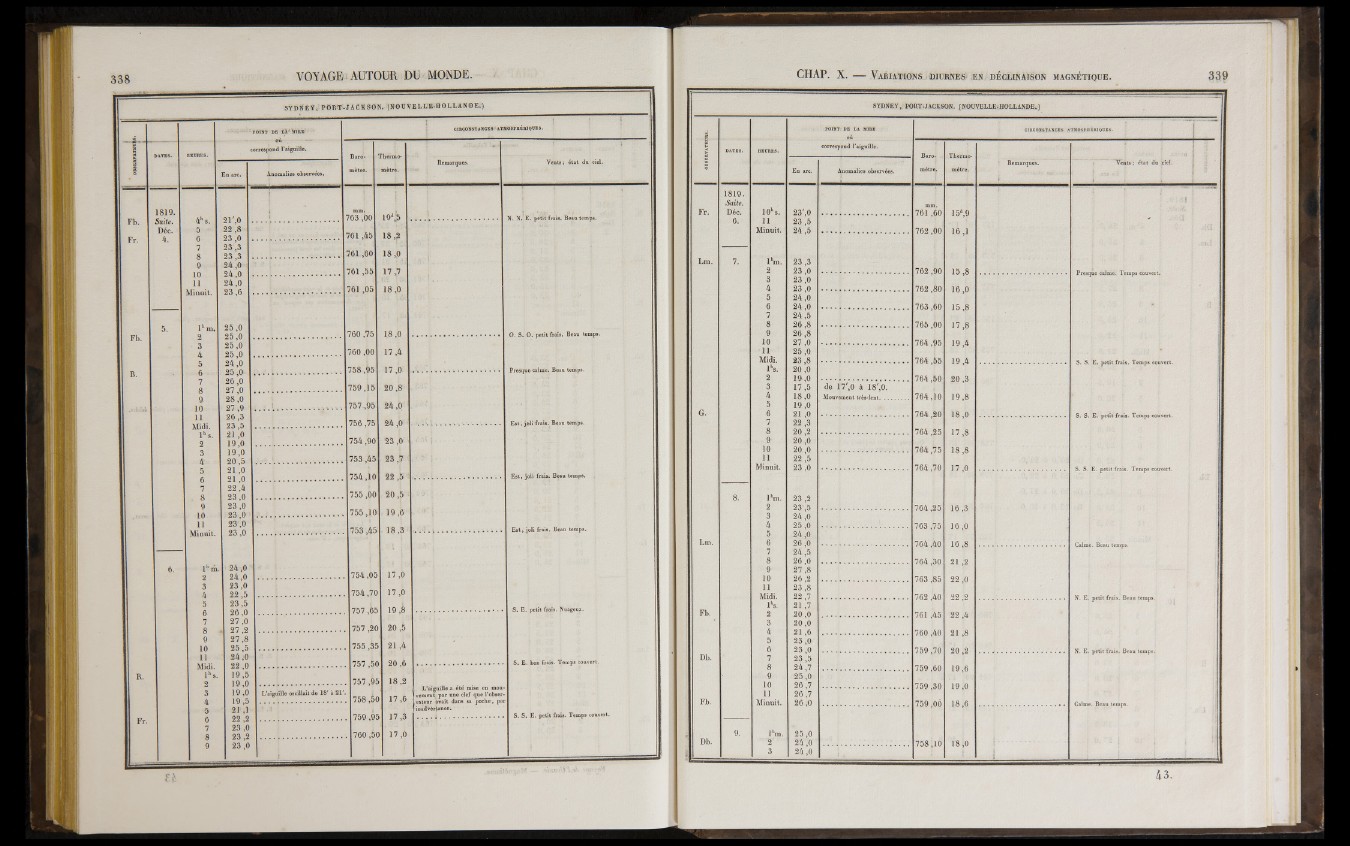 338 VOYAGE AUTOUR DU MONDE.
SYDNEY, PORT-JACKSON. (NOUVELLE-HOLLANDE.)
DATES. HEURES. POINT DE LA MIRE où correspond l'aiguille. CIRCONSTANCES ATMOSPHÉRIQUES.
En arc. Anomalies observées. Baromètre. Thermomètre. Remarques. Vents; état du ciel.
1819.
Fb. Suite. 4h s. 21',0 mm. 763,00 19d,5 N. N. E. petit frais. Beau temps.
Déc. 5 22,8
Fr. 4. 6 23,0 761,45 18,2
7 23,3
8 23,3 761,00 18,0
9 24,0
10 24,0 761,55 17,7
11 24,0
Minuit. 23,6 761,05 18,0
5. 1h m. 25,0
Fb. 2 25,0 760,75 18,0 O. S. O. petit frais. Beau temps.
3 25,0
4 25,0 760,00 17,4
5 24,0
B. 6 25,0 758,95 17,0 Presque calme. Beau temps.
7 26,0
8 27,0 759,15 20,8
9 28,0
10 27,9 757,95 24,0
11 26,3
Midi. 23,5 756,75 24,0 Est, joli frais. Beau temps.
1h s. 21,0
2 19,0 754,90 23,0
3 19,0
4 20,5 753,45 23,7
5 21,0
6 21,0 754,10 22,5 Est, joli frais. Beau temps.
7 22,4
8 23,0 755,00 20,5
9 23,0
10 23,0 755,10 19,6
11 23,0
Minuit. 23,0 753,45 18,3 Est, joli frais. Beau temps.
6. 1h m. 24,0
2 24,0 754,05 17,0
3 23,0
4 22,5 754,70 17,0
5 23,5
6 26,0 757,65 19,8 S. E. petit frais. Nuageux.
7 27,0
8 27,2 757,20 20,5
9 27,8
10 25,5 755,35 21,4
11 24,0
Midi. 22,0 757,50 20,6 S. E. bon frais. Temps couvert.
R. 1h s. 19,5
2 19,0 757,95 18,2
3 19,0 L'aiguille oscillait de 18' à 21'. L'aiguille a été mise en mouvement par une clef que l'observateur avait dans sa poche, par inadvertance.
4 19,5 758,50 17,6
5 21,1
Fr. 6 22,2 759,95 17,3 S. S. E. petit frais. Temps couvert.
7 23,0
8 23,2 760,50 17,0
9 23,0
CHAP. X. — VARIATIONS DIURNES EN DÉCLINAISON MAGNÉTIQUE. 339
SYDNEY, PORT-JACKSON. (NOUVELLE-HOLLANDE.)
DATES. HEURES. POINT DE LA MIRE où correspond l'aiguille. CIRCONSTANCES ATMOSPHÉRIQUES.
En arc. Anomalies observées. Baromètre. Thermomètre. Remarques. Vents; état du ciel.
1819.
Suite.
Fr. Déc. 10h s. 23',0 mm. 761,60 15d,9
6. 11 23,5
Minuit. 24,5 762,00 16,1
Lm. 7. 1h m. 23,3
2 23,0 762,90 15,8 Presque calme. Temps couvert.
3 23,0
4 23,0 762,80 16,0
5 24,0
6 24,0 763,60 15,8
7 24,5
8 26,8 765,00 17,8
9 26,8
10 27,0 764,95 19,4
11 25,0
Midi. 23,8 764,55 19,4 S. S. E. petit frais. Temps couvert.
1h s. 20,0
2 19,0 764,50 20,3
3 17,5 de 17',0 à 18',0.
4 18,0 Mouvement très-lent. 764,10 19,8
5 19,0
G. 6 21,0 764,20 18,0 S. S. E. petit frais. Temps couvert.
7 22,3
8 20,2 764,25 17,8
9 20,0
10 20,0 764,75 18,8
11 22,5
Minuit. 23,0 764,70 17,0 S. S. E. petit frais. Temps couvert.
8. 1h m. 23,2
2 23,5 764,25 16,3
3 24,0
4 25,0 763,75 16,0
5 24,0
Lm. 6 26,0 764,40 16,8 Calme. Beau temps.
7 24,5
8 26,0 764,30 21,2
9 27,8
10 26,2 763,85 22,0
11 23,8
Midi. 22,7 762,40 22,2 N. E. petit frais. Beau temps.
1h s. 21,7
Fb. 2 20,0 761,45 22,4
3 20,0
4 21,6 760,40 21,8
5 23,0
6 23,0 759,70 20,2 N. E. petit frais. Beau temps.
Db. 7 23,5
8 24,7 759,60 19,6
9 25,0
10 26,7 759,30 19,0
11 26,7
Fb. Minuit. 26,0 759,00 18,6 Calme. Beau temps.
9. 1h m. 25,0
Db. 2 24,0 758,10 18,0
3 24,0
43.